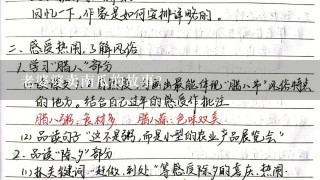 回忆一下，作家是如何安排详略的。
二、感受热闹，了解风俗
1.学习“腊八”部分
最能体现“腊八节”风俗特点
的地方。结合自己过年的感受作批注
腊八粥：食材多 腊八蒜：色味双美
(2) 品读句子“这不是粥，而是小型的农业产品展览会”
2.品读“除夕”部分
(1) 抓关键词“赶做、到处”等感受除夕的喜庆、热闹